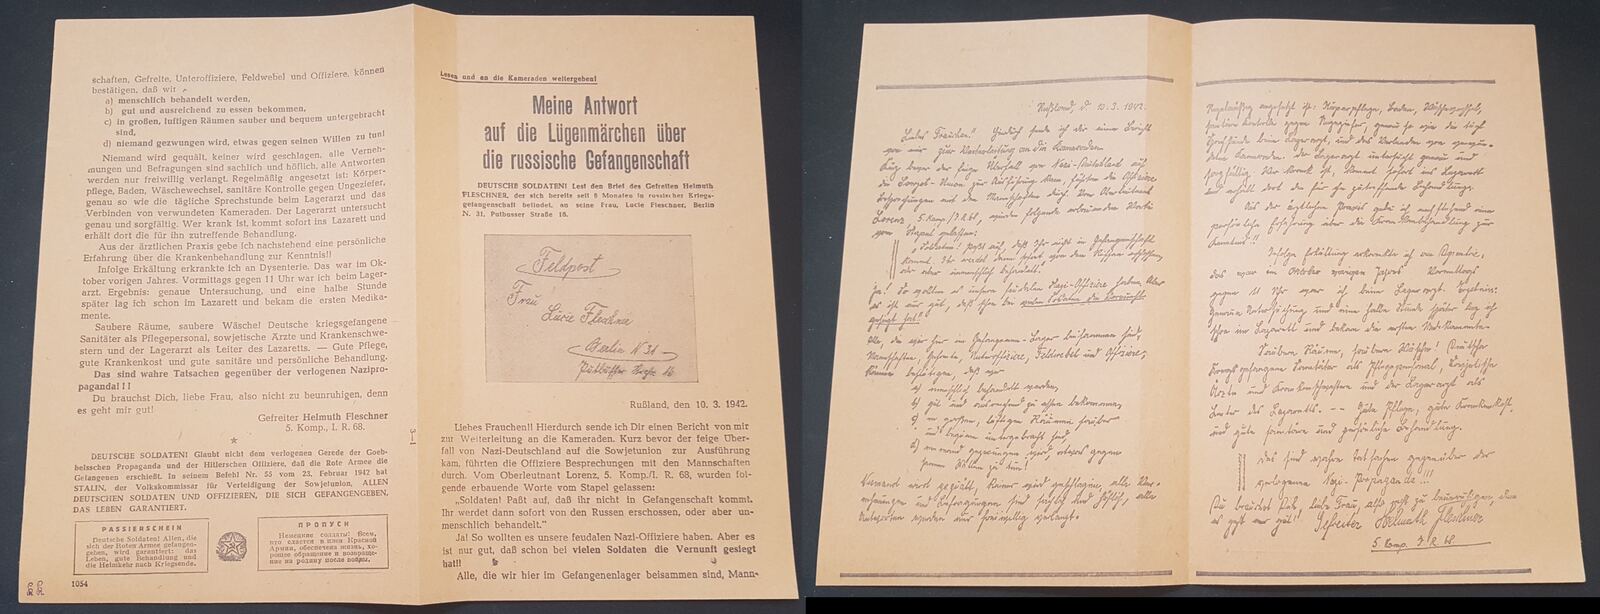 schaften, Gefreite, Unteroffiziere, Feldwebel und Offiziere, können
bestätigen, daß wir
a) menschlich behandelt werden,
b) gut und ausreichend zu essen bekommen,
c) in großen, luftigen Räumen sauber und bequem untergebracht
sind,
d) niemand gezwungen wird, etwas gegen seinen Willen zu tun!
Niemand wird gequält, keiner wird geschlagen, alle Verneh-
mungen und Befragungen sind sachlich und höflich, alle Antworten
werden nur freiwillig verlangt. Regelmäßig angesetzt ist: Körper-
pflege, Baden, Wäschewechsel, sanitäre Kontrolle gegen Ungeziefer,
genau so wie die tägliche Sprechstunde beim Lagerarzt und das
Verbinden von verwundeten Kameraden. Der Lagerarzt untersucht
genau und sorgfältig. Wer krank ist, kommt sofort ins Lazarett und
erhält dort die für ihn zutreffende Behandlung.
Aus der ärztlichen Praxis gebe ich nachstehend eine persönliche
Erfahrung über die Krankenbehandlung zur Kenntnis!!
Infolge Erkältung erkrankte ich an Dysenterie. Das war im Ok-
tober vorigen Jahres. Vormittags gegen 11 Uhr war ich beim Lager-
arzt. Ergebnis: genaue Untersuchung, und eine halbe Stunde
später lag ich schon im Lazarett und bekam die ersten Medika-
mente.
Saubere Räume, saubere Wäsche! Deutsche kriegsgefangene
Sanitäter als Pflegepersonal, sowjetische Ärzte und Krankenschwe-
stern und der Lagerarzt als Leiter des Lazaretts. — Gute Pflege,
gute Krankenkost und gute sanitäre und persönliche Behandlung.
Das sind wahre Tatsachen gegenüber der verlogenen Nazipro-
paganda!!!
Du brauchst Dich, liebe Frau, also nicht zu beunruhigen, denn
es geht mir gut!
Gefreiter Helmuth Fleschner
5. Komp., I. R. 68.
DEUTSCHE SOLDATEN! Glaubt nicht dem verlogenen Gerede der Goeb-
belsschen Propaganda und der Hitlerschen Offiziere, daß die Rote Armee die
Gefangenen erschießt. In seinem Befehl Nr. 55 vom 23. Februar 1942 hat
STALIN, der Volkskommissar für Verteidigung der Sowjetunion, ALLEN
DEUTSCHEN SOLDATEN UND OFFIZIEREN, DIE SICH GEFANGENGEBEN,
DAS LEBEN GARANTIERT.
PASSIERSCHEIN
Deutsche Soldaten! Allen, die
sich der Roten Armee gefangen-
geben, wird garantiert: das
Leben, gute Behandlung und
die Heimkehr nach Kriegsende.
ПРОПУСК
Немецкие солдаты! Всем,
кто сдается в плен Красной
Армии, обеспечена жизнь, хо-
рошее обращение и возвраще-
ние на родину после войны.
1054
Lesen und an die Kameraden weitergeben!
Meine Antwort
auf die Lügenmärchen über
die russische Gefangenschaft
DEUTSCHE SOLDATEN! Lest den Brief des Gefreiten Helmuth
FLESCHNER, der sich bereits seit 8 Monaten in russischer Kriegs-
gefangenschaft befindet, an seine Frau, Lucie Fleschner, Berlin
N. 31, Putbusser Straße 16.
Feldpost
Frau
Lucie Fleschner
Berlin N 31
Putbusser Straße 16
Rußland, den 10. 3. 1942.
Liebes Frauchen!! Hierdurch sende ich Dir einen Bericht von mir
zur Weiterleitung an die Kameraden. Kurz bevor der feige Über-
fall von Nazi-Deutschland auf die Sowjetunion zur Ausführung
kam, führten die Offiziere Besprechungen mit den Mannschaften
durch. Vom Oberleutnant Lorenz, 5. Komp./I. R. 68, wurden fol-
gende erbauende Worte vom Stapel gelassen:
„Soldaten! Paßt auf, daß ihr nicht in Gefangenschaft kommt.
Ihr werdet dann sofort von den Russen erschossen, oder aber un-
menschlich behandelt.“
Ja! So wollten es unsere feudalen Nazi-Offiziere haben. Aber es
ist nur gut, daß schon bei vielen Soldaten die Vernunft gesiegt
hat!!
Alle, die wir hier im Gefangenenlager beisammen sind, Mann-
Rußland, d. 10.3.1942.
Liebes Frauchen!! Hierdurch sende ich dir einen Bericht
von mir zur Weiterleitung an die Kameraden.
Kurz bevor der feige Überfall von Nazi-Deutschland auf
die Sowjet-Union zur Ausführung kam, führten die Offiziere
Besprechungen mit den Mannschaften durch. Vom Oberleutnant
Lorenz, 5. Komp./I.R. 68, wurden folgende erbauenden Worte
vom Stapel gelassen:
Soldaten! Paßt auf, daß Ihr nicht in Gefangenschaft
kommt. Ihr werdet dann sofort von den Russen erschossen,
oder aber unmenschlich behandelt."
Ja! So wollten es unsere feudalen Nazi-Offiziere haben. Aber
es ist nur gut, daß schon bei vielen Soldaten die Vernunft
gesiegt hat!!
Alle, die wir hier im Gefangenen-Lager beisammen sind,
Mannschaften, Gefreite, Unteroffiziere, Feldwebel und Offiziere,
können bestätigen, daß wir
a) menschlich behandelt werden,
b) gut und ausreichend zu essen bekommen,
c) in großen, luftigen Räumen sauber
und bequem untergebracht sind,
d) niemand gezwungen wird, etwas gegen
seinen Willen zu tun!
Niemand wird gequält, keiner wird geschlagen, alle Ver-
nehmungen und Befragungen sind sachlich und höflich, alle
Antworten werden nur freiwillig verlangt.
Regelmäßig angesetzt ist: Körperpflege, Baden, Wäschewechsel,
sanitäre Kontrolle gegen Ungeziefer, genau so wie die tägl.
Sprechstunde beim Lagerarzt, und das Verbinden von verwun-
deten Kameraden. Der Lagerarzt untersucht genau und
sorgfältig. Wer krank ist, kommt sofort ins Lazarett
und erhält dort die für ihn zutreffende Behandlung.
Aus der ärztlichen Praxis gebe ich nachstehend eine
persönliche Erfahrung über die Krankenbehandlung zur
Kenntnis!!
Infolge Erkältung erkrankte ich an Dysenterie,
das war im Oktober vorigen Jahres. Vormittags
gegen 11 Uhr war ich beim Lagerarzt. Ergebnis:
Genaue Untersuchung und eine halbe Stunde später lag ich
schon im Lazarett und bekam die ersten Medikamente.
Saubere Räume, saubere Wäsche! Deutsche
kriegsgefangene Sanitäter als Pflegepersonal, sowjetische
Ärzte und Krankenschwestern und der Lagerarzt als
Leiter des Lazaretts. -- Gute Pflege, gute Krankenkost,
und gute sanitäre und persönliche Behandlung.
Das sind wahre Tatsachen gegenüber der
verlogenen Nazi-Propaganda!!!
Du brauchst Dich, liebe Frau, also nicht zu beunruhigen, denn
es geht mir gut! Gefreiter Helmuth Fleschner
5. Komp. I.R. 68.